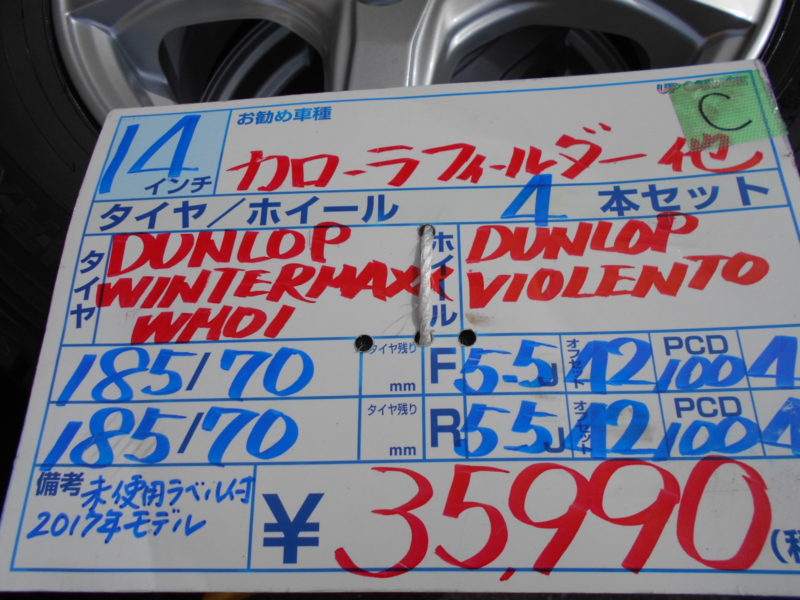 UP GARAGE
C
お勧め車種
14インチ
カローラフィールダー他
タイヤ/ホイール 4 本セット
タイヤ
DUNLOP
WINTERMAXX
WM01
ホイール
DUNLOP
VIOLENTO
185/70 タイヤ残り mm F 5.5J オフセット 42 PCD 100 4
185/70 タイヤ残り mm R 5.5J オフセット 42 PCD 100 4
備考 未使用ラベル付
2017年モデル
¥35,990